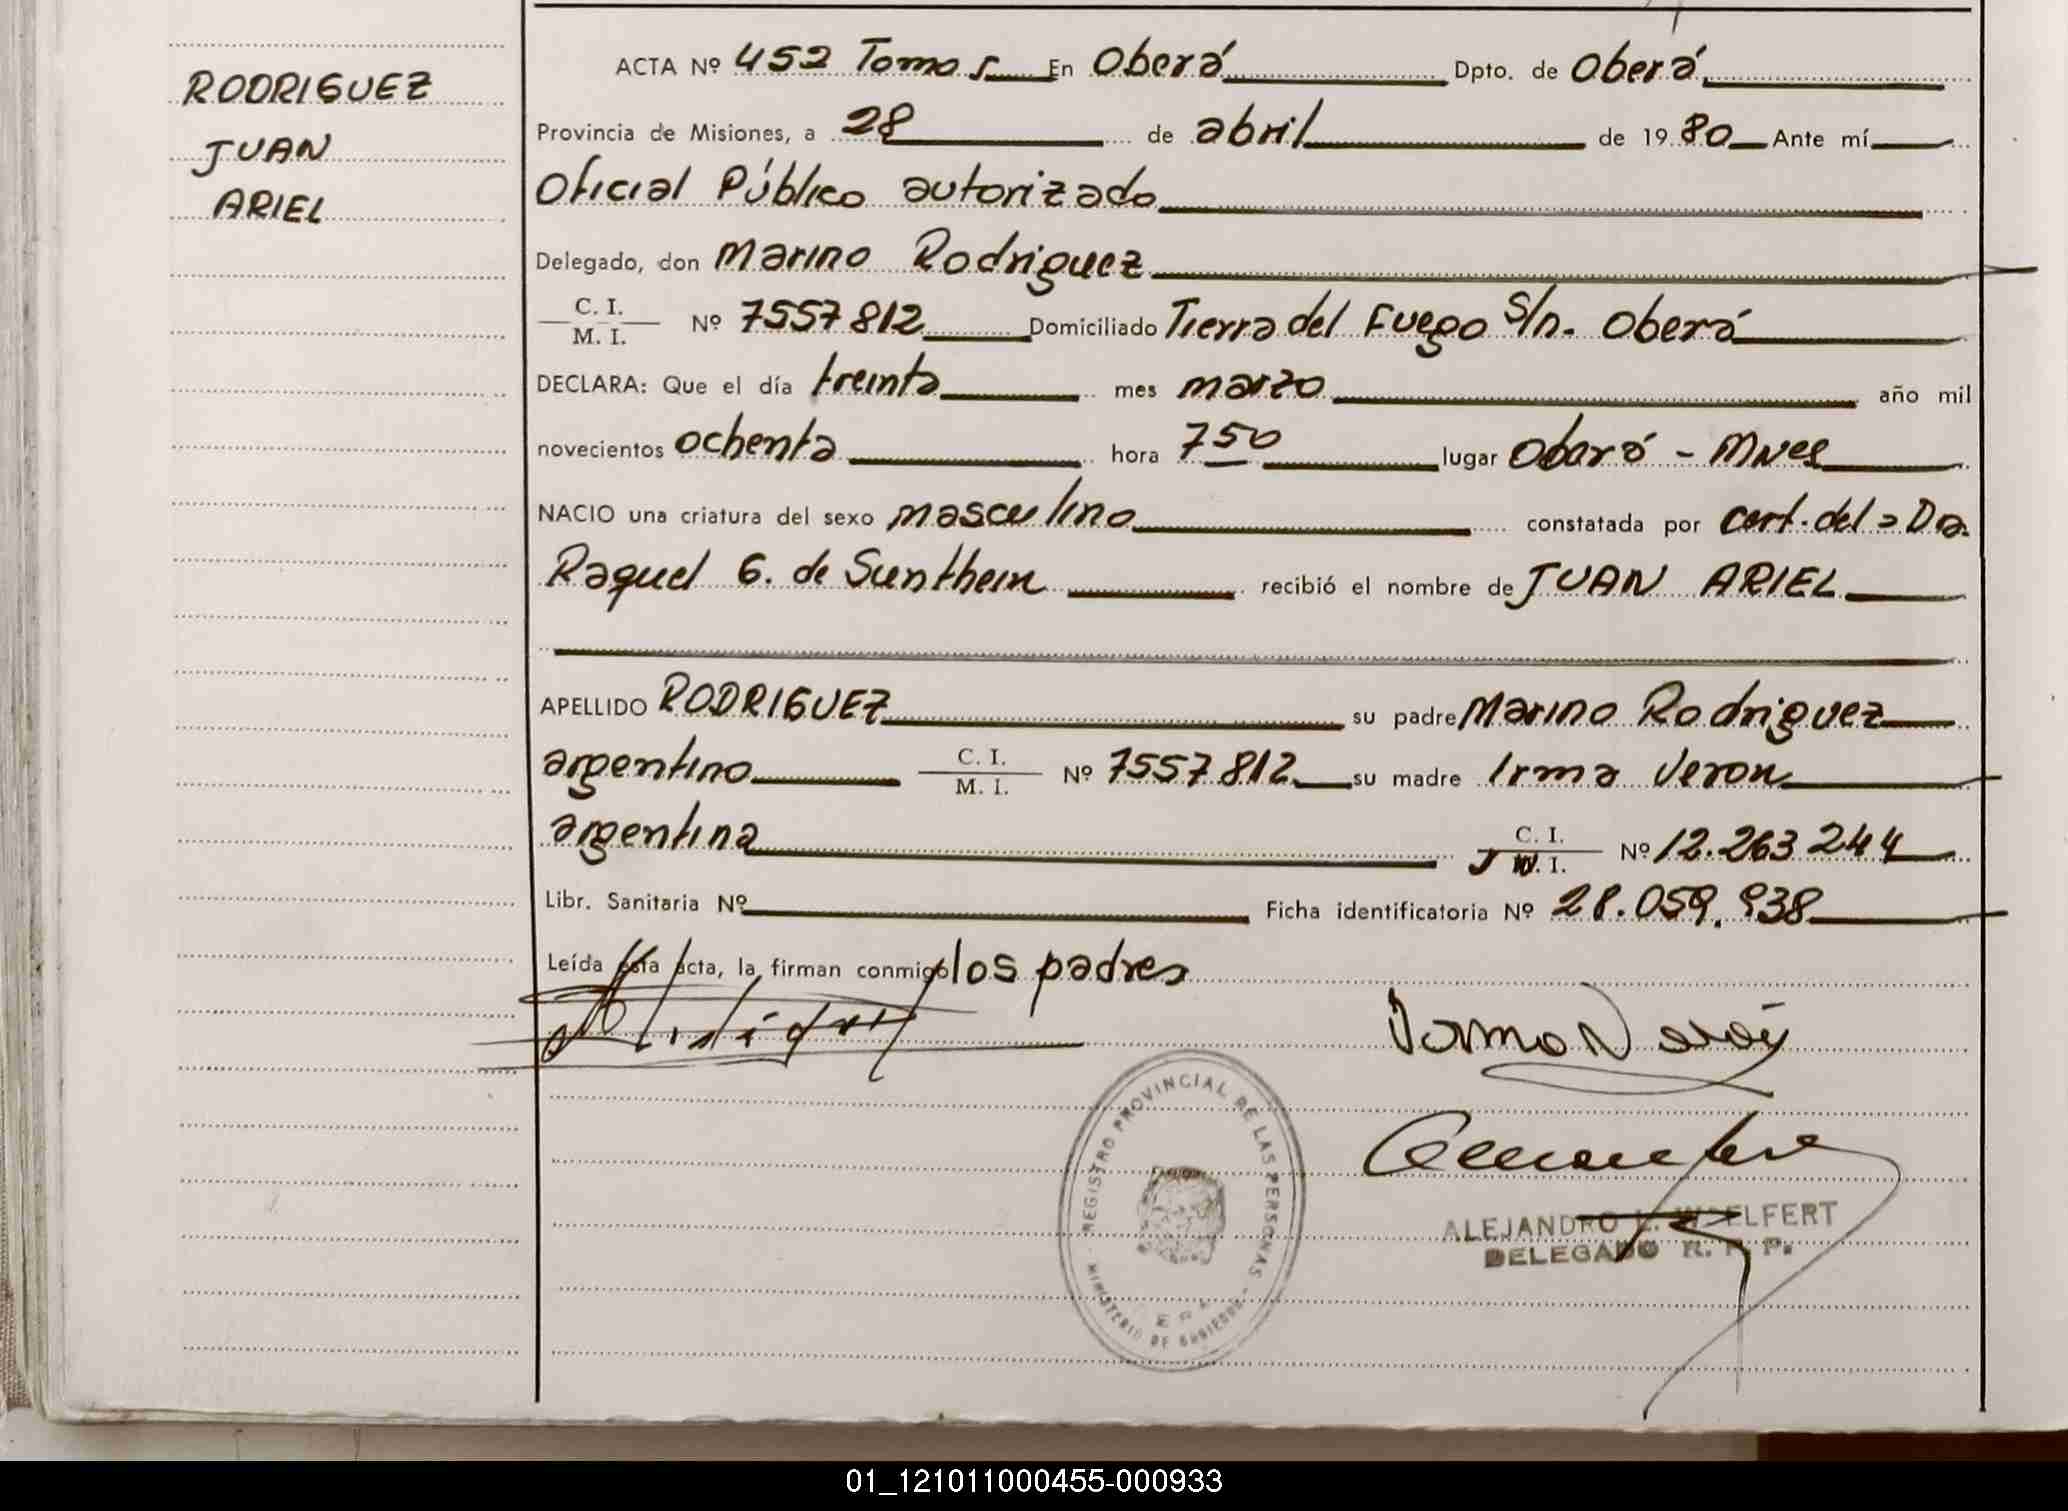 RODRIGUEZ
JUAN
ARIEL
ACTA Nº 452 Tomo 5 En Oberá Dpto. de Oberá
Provincia de Misiones, a 28 de abril de 1980 Ante mí
Oficial Público autorizado
Delegado, don Marino Rodriguez
C. I.
M. I. Nº 7557812 Domiciliado Tierra del Fuego S/n. Oberá
DECLARA: Que el día treinta mes marzo año mil
novecientos ochenta hora 750 lugar Oberá - Mnes
NACIO una criatura del sexo masculino constatada por cert. del a Dra.
Raquel G. de Sunthein recibió el nombre de JUAN ARIEL
APELLIDO RODRIGUEZ su padre Marino Rodriguez
argentino C. I.
M. I. Nº 7557812 su madre Irma Veron
argentina C. I.
M. I. Nº 12.263244
Libr. Sanitaria Nº Ficha identificatoria Nº 28.059.938
Leída esta acta, la firman conmigo los padres
REGISTRO PROVINCIAL DE LAS PERSONAS
MINISTERIO DE GOBIERNO
ALEJANDRO L. WOELFERT
DELEGADO R. P. P.
01_121011000455-000933